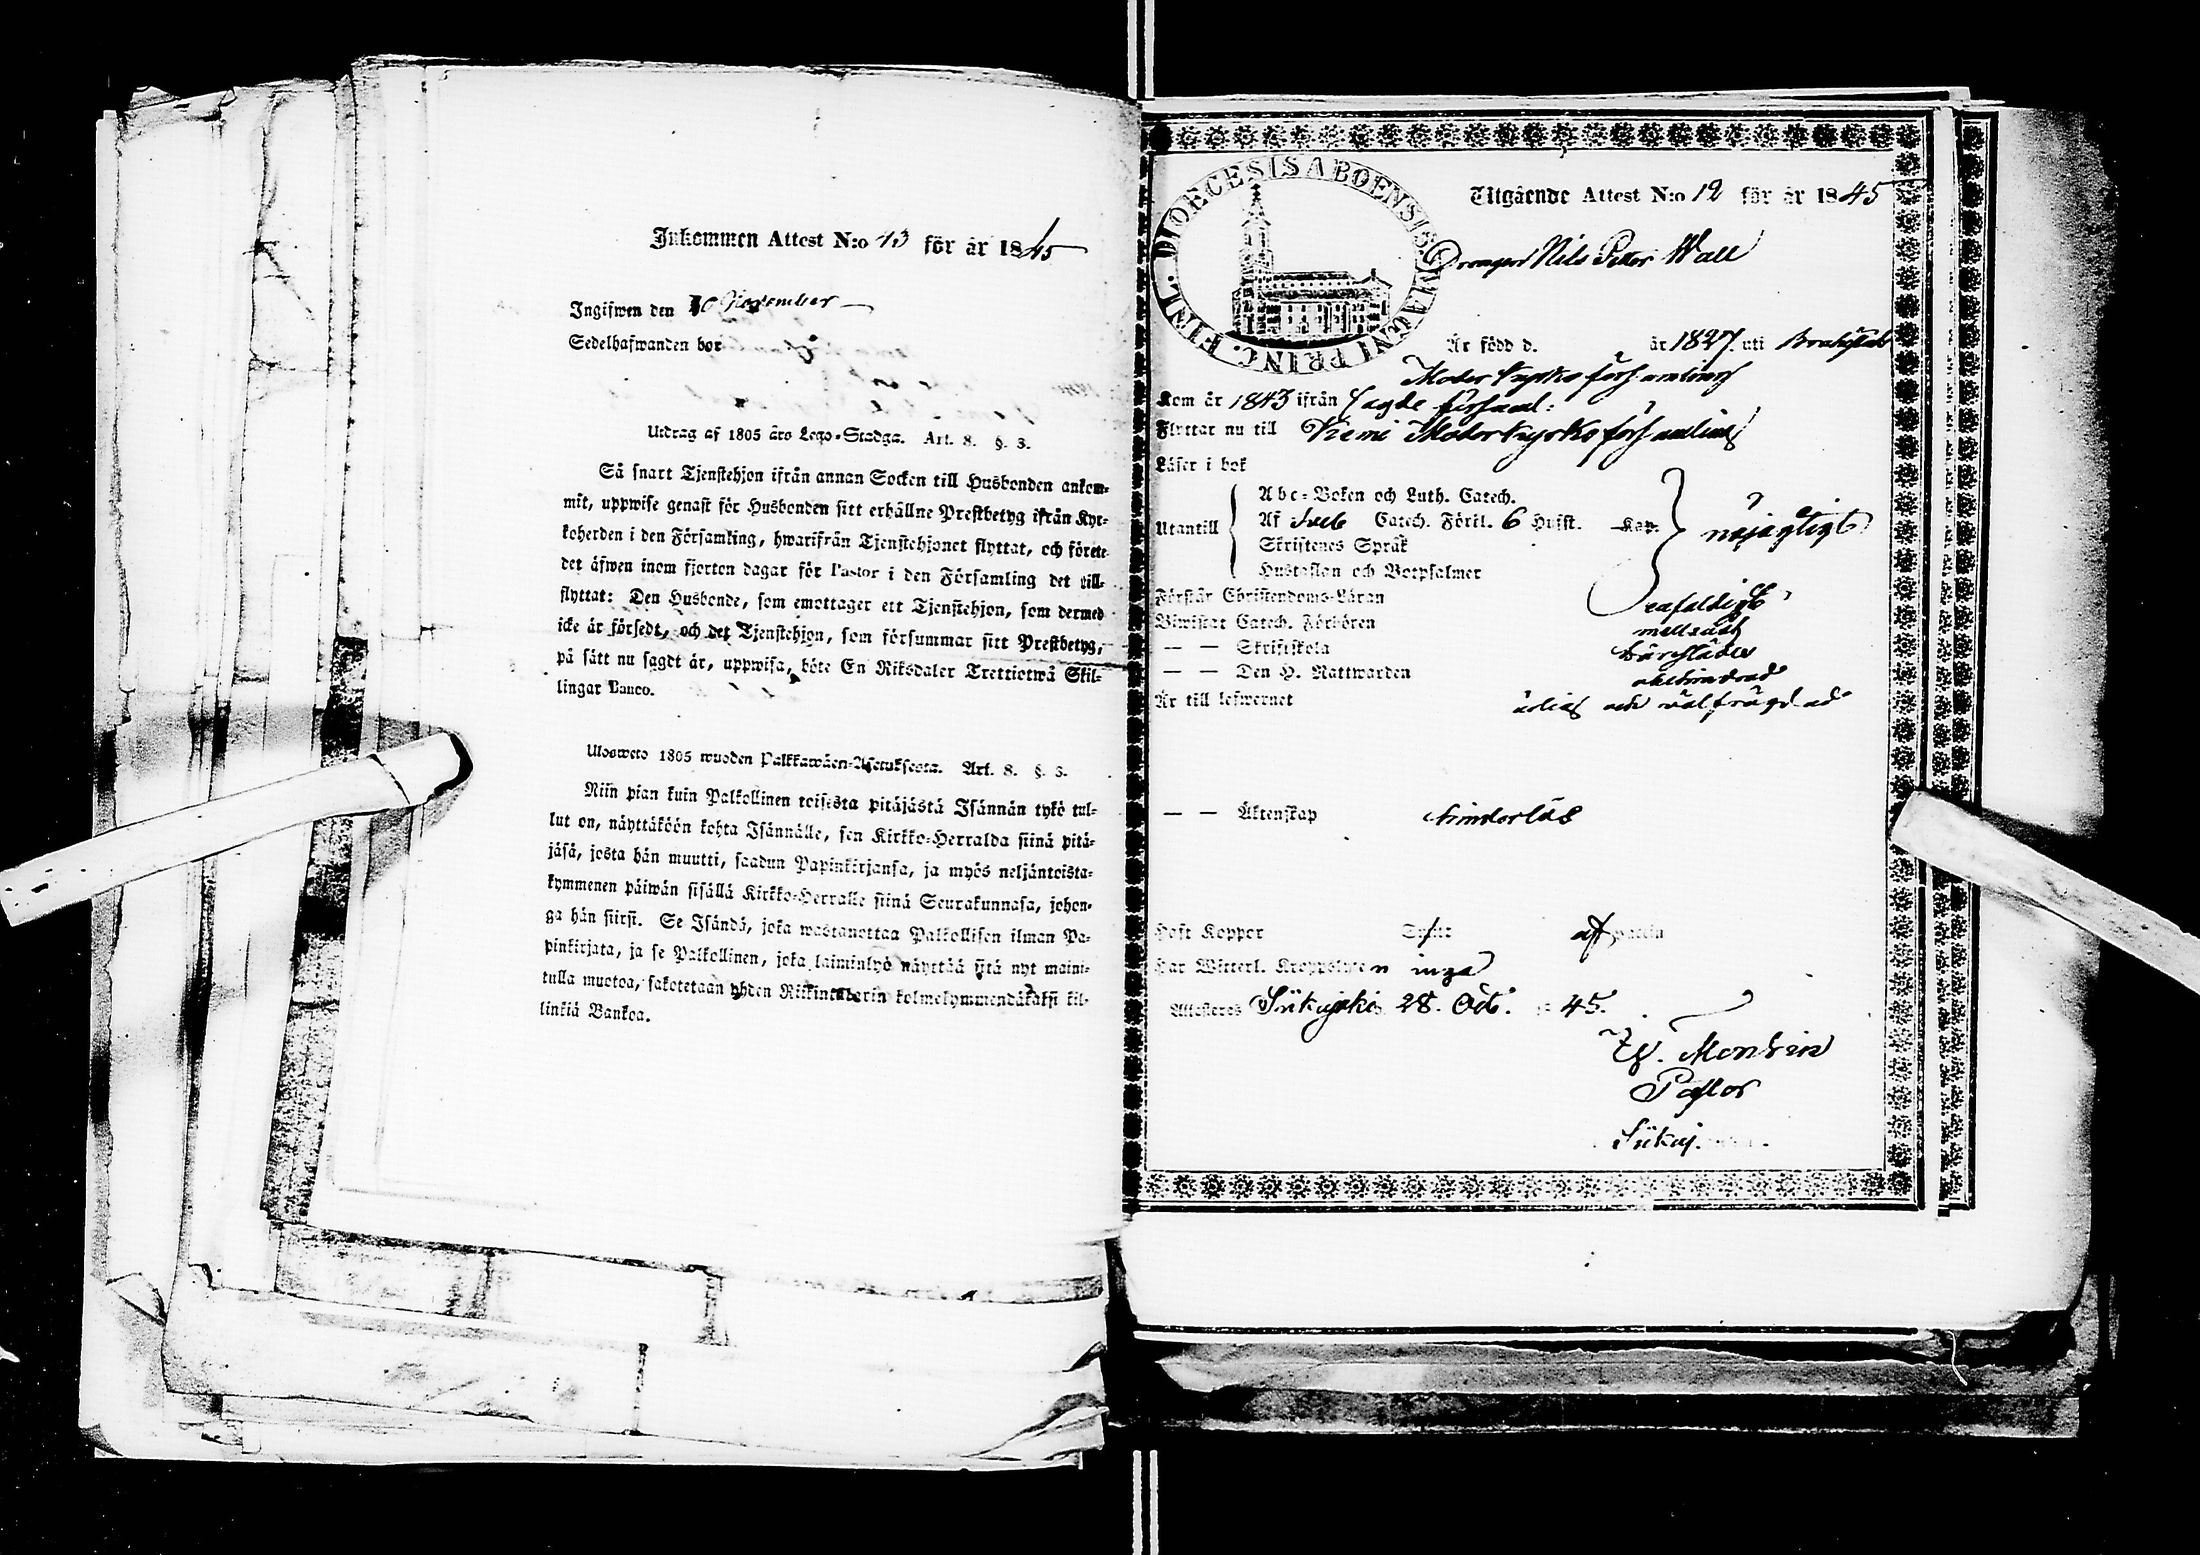 Inkommen Attest N:o 43 för år 1845
Ingifwen den 10 November
Sedelhafwanden bor
Utdrag af 1805 års Lego-Stadga. Art. 8. §. 3.
Så snart Tjenstehjon ifrån annan Socken till Husbonden ankom-
mit, uppwise genast för Husbonden sitt erhållne Prestbetyg ifrån Kyr-
koherden i den Församling, hwarifrån Tjenstehjonet flyttat, och förete
det äfwen inom fjorton dagar för Pastor i den Församling det till-
flyttat: Den Husbonde, som emottager ett Tjenstehjon, som dermed
icke är försedt, och det Tjenstehjon, som försummar sitt Prestbetyg,
på sätt nu sagdt är, uppwisa, böte En Riksdaler Trettiotwå Skil-
lingar Banco.
Ulosweto 1805 wuoden Palkkawäen-Asetuksesta. Art. 8. §. 3.
Niin pian kuin Palkollinen toisesta pitäjästä Isännän tykö tul-
lut on, näyttäköön kohta Isännälle, sen Kirkko-Herralda siinä pitä-
jäsä, josta hän muutti, saadun Papinkirjansa, ja myös neljäntoista-
kymmenen päiwän sisällä Kirkko-Herralle siinä Seurakunnasa, johon-
ga hän siirsi. Se Isändä, joka wastanottaa Palkollisen ilman Pa-
pinkirjata, ja se Palkollinen, joka laiminlyö näyttää sitä nyt maini-
tulla muotoa, sakotetaan yhden Riikintalarin kolmekymmendäkaksi kil-
linkiä Bankoa.
DIOECESIS ABOENSIS MAGNI PRINC. FINL.
Utgående Attest N:o 12 för år 1845
Drengen Nils Petter Wall
Är född d. år 1827. uti Brahestad
Moder kyrko församling
Kom år 1843 ifrån sagde församl:
Flyttar nu till Kemi Moderkyrko församling
Läser i bok
Utantill
Abc-Boken och Luth. Catech.
Af Sveb Catech. Förkl. 6 Hufst. Kap.
nöjagtigt
Skriftenes Språk
Hustaflan och Botpsalmer
Förstår Christendoms-Läran enfaldigt
Biwistat Catech. Förhören
— — Skriftskola
— — Den H. Nattwarden
Är till lefwernet ärlig och välfrägdad
— — Äktenskap hinderlös
Haft Koppor
Har Witterl. Kroppslyten inga
Attesteres Siikajoki 28. Oct. 1845.
Pastor
Siikaj.